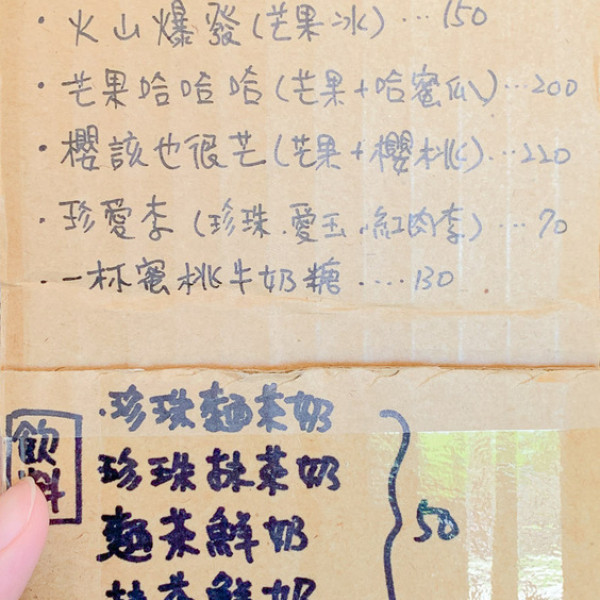 ・火山爆發(芒果冰)…150
・芒果哈哈哈(芒果+哈蜜瓜)…200
・櫻該也很芒(芒果+櫻桃)…220
・珍愛李(珍珠.愛玉.紅肉李)…70
・一杯蜜桃牛奶糖....130
飲料
・珍珠麵茶奶
珍珠抹茶奶
麵茶鮮奶
50
抹茶鮮奶